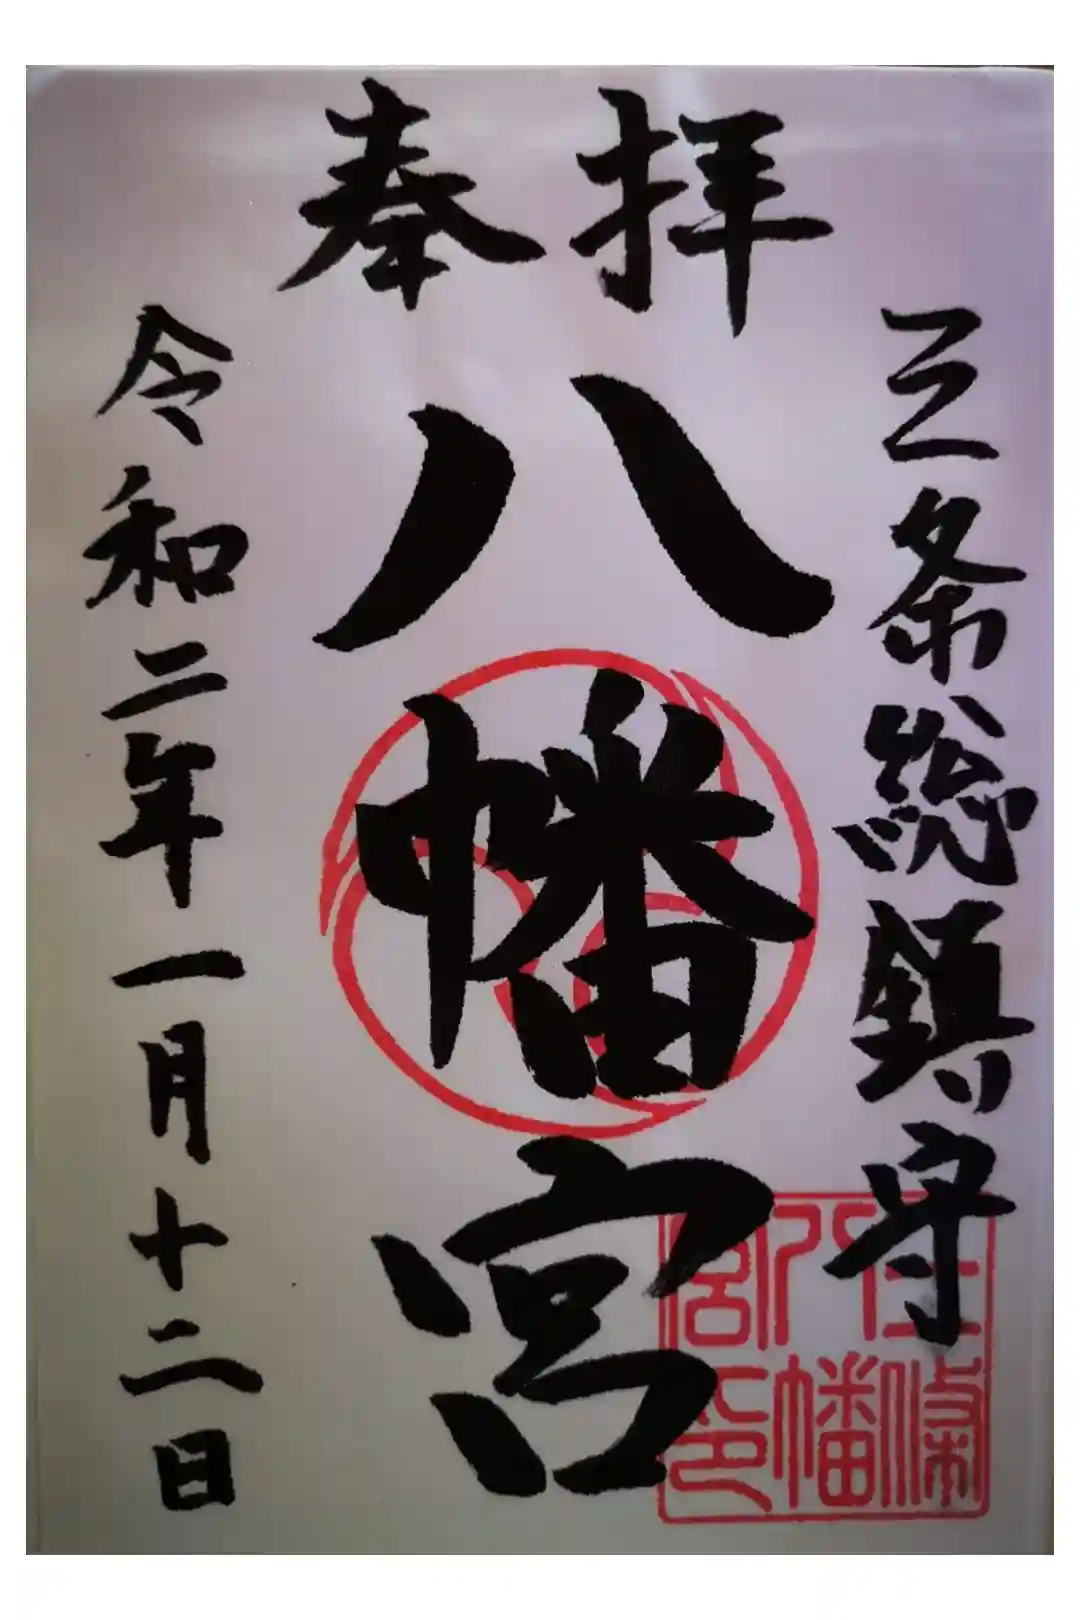 奉拝
三条総鎮守
八幡宮
令和二年一月十二日
條
八幡
宮印